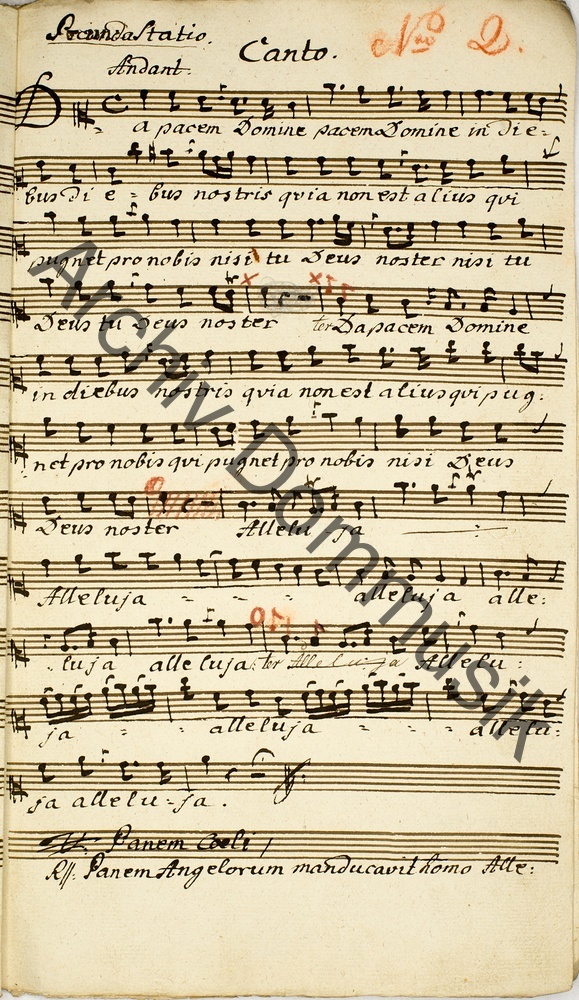 Secunda Statio.
Canto.
Nro 2.
Andant:
Da pacem Domine pacem Domine in Die=
bus Di e = bus nostris qvia non est alius qvi
pugnet pro nobis nisi tu Deus noster nisi tu
Deus tu Deus noster ter Da pacem Domine
in diebus nostris qvia non est alius qvi pug:
net pro nobis qvi pugnet pro nobis nisi Deus
Deus noster Allelu ja
Alleluja - - - alleluja alle:
luja alleluja: ter Alleluja Allelu:
ja - - alleluja - - allelu:
ja allelu-ja.
Panem Coeli
R//: Panem Angelorum manducavit homo Alle:
Archiv Dommusik